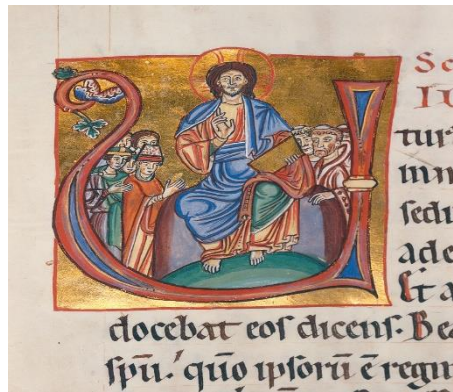 Sc
tur
sedi
ade
Et a
docebat eos dicens. Bea
spū. qūo ipsorū ē regn